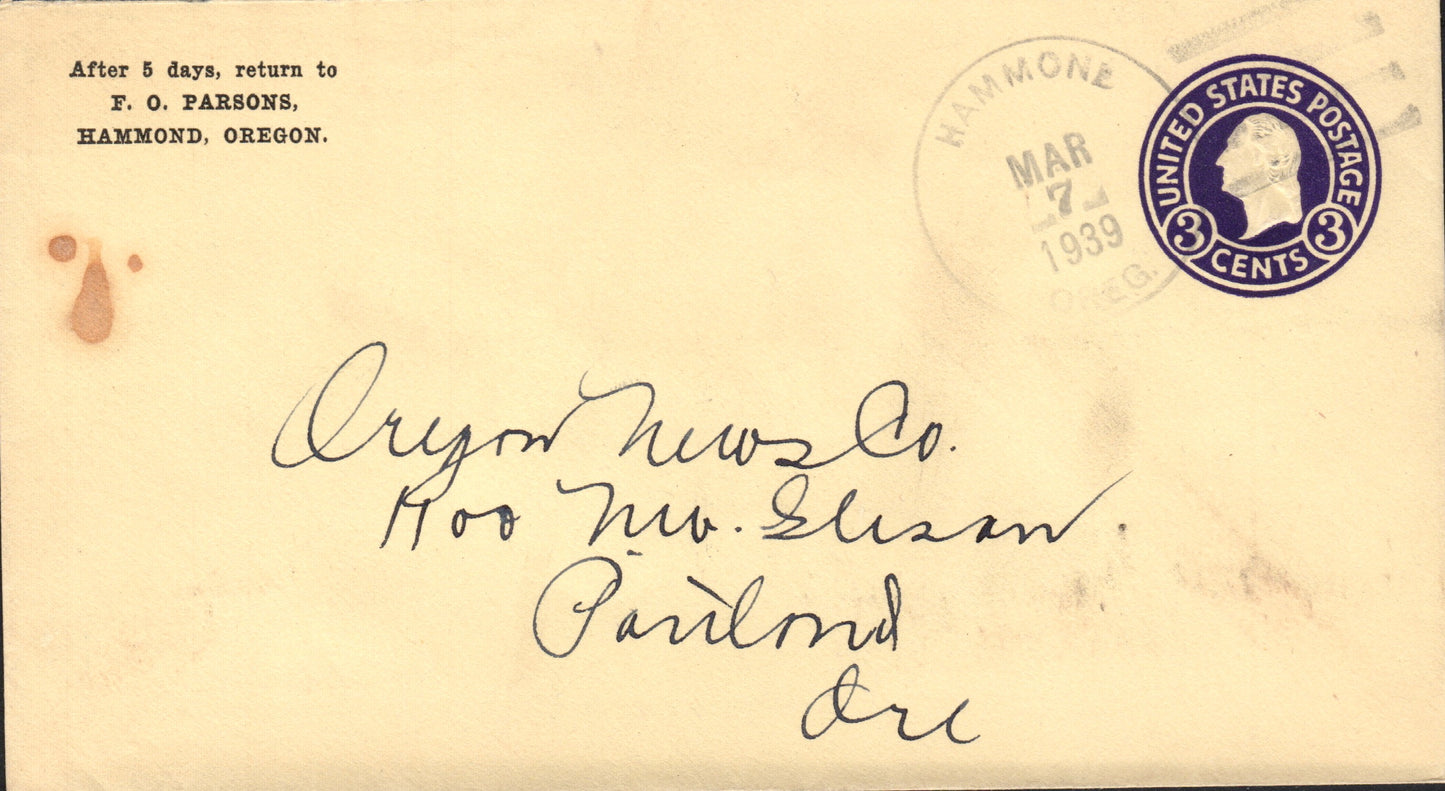 After 5 days, return to
F. O. PARSONS,
HAMMOND, OREGON.
HAMMOND
MAR
7
1939
OREG.
UNITED STATES POSTAGE
3 CENTS 3
Oregon News Co.
1400 NW. Glisan
Portland
Ore